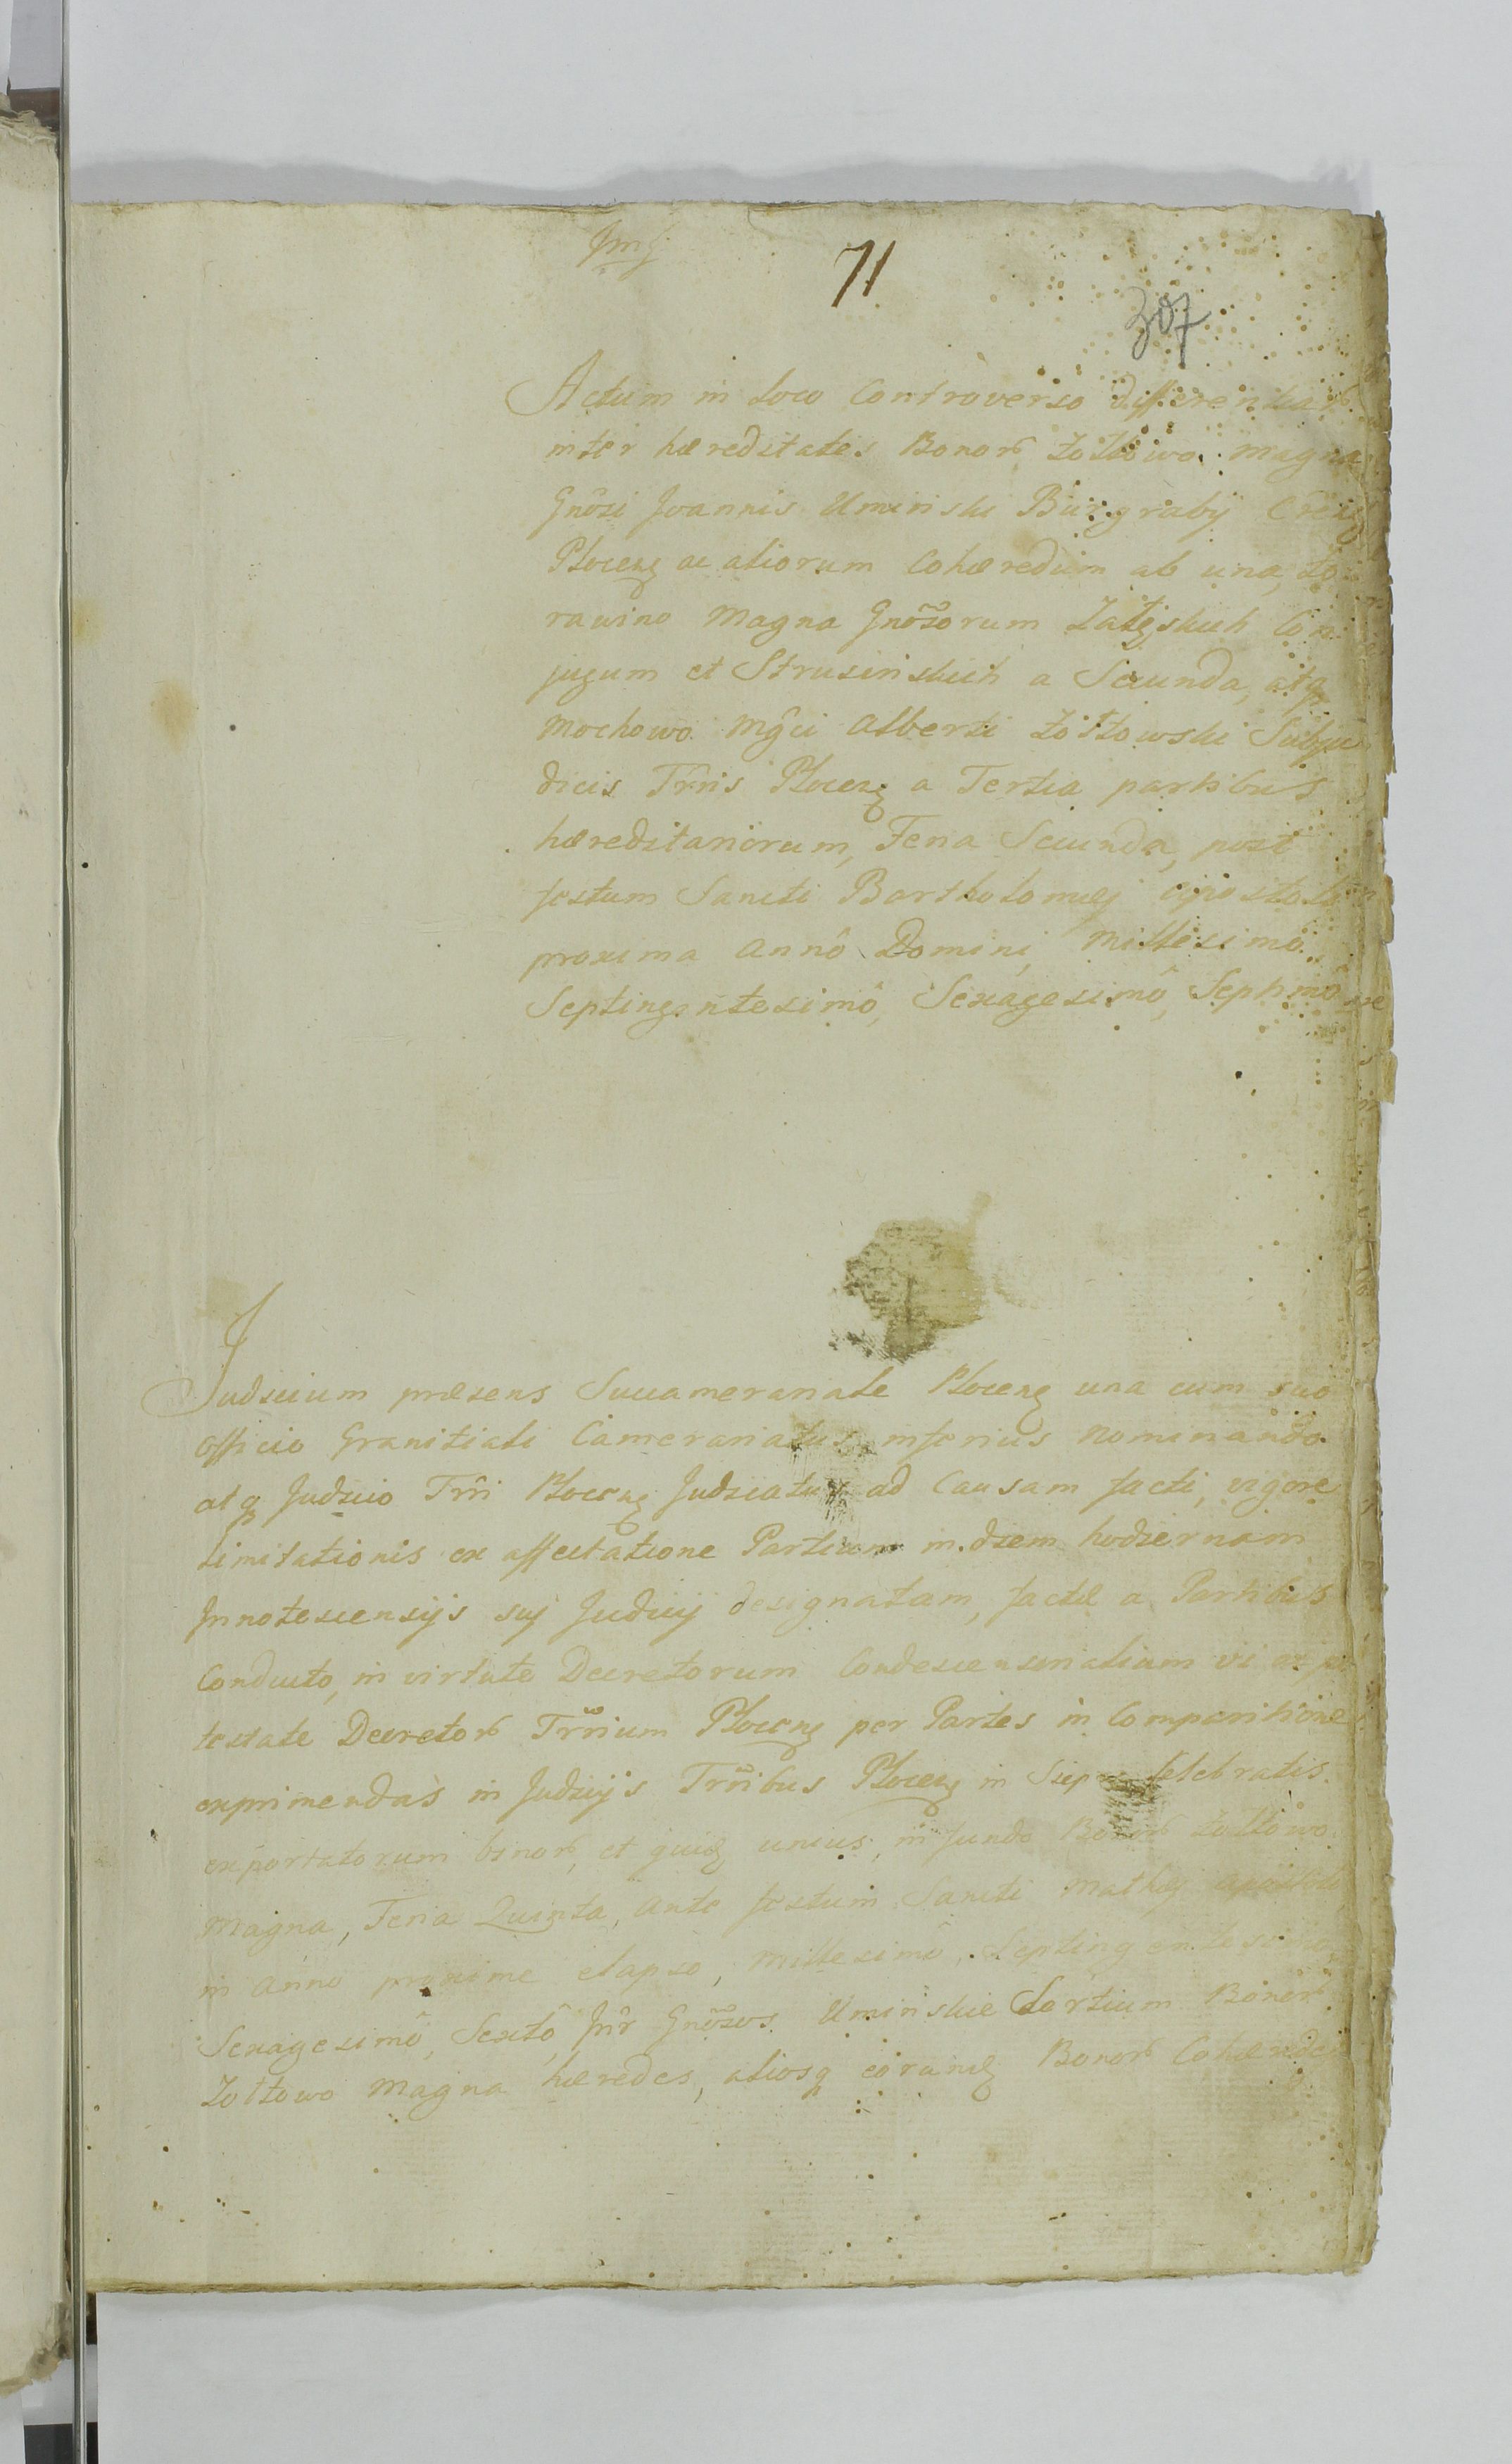 71
307
Actum in Loco Controverso differentiar
inter hæreditates Bonor Zołtowo Magna
Gnôsi Joannis Uminski Burgrabij
Płocenş ac aliorum Cohæredum ab una, Zo
rawino Magna Gnosorum Con
jugum et Strusinskich a Secunda, atq
Mochowo Mgci Alberti Zołtowski Subju
dicis Trris Płocenş a Tertia partibus
hæreditariorum, Feria Secunda, post
festum Sancti Bartholomæj Apostoli
proxima Annô Domini Millesimô
Septingentesimô, Sexagesimô, Septimô
Judicium præsens Succamerariale Płocenş una cum suo
Officio Granitiali Camerariatus inferius Nominando
atq Judicio Trri Płocenş Judicatus ad Causam facti, vigore
Limitationis ex affectatione Partium in diem hodiernam
Innotescensijs suj Judicij designatam, factæ a Partibus
Conducto, in virtute Decretorum Condescensionalium vi ex po
testate Decretor Trrium Płocenş per Partes in Comparitione
exprimendas in Judicijs Trribus Płocenş in celebratis
exportatorum binor, et quid unius, in fundo Bonor Zołtowo
Magna, Feria Quinta, ante festum Sancti Mathæj Apostoli
in anno proxime elapso, Millesimô, Septingentesimo
Sexagesimô, Sextô, Intr Gnosos Uminskie Sortium Bonor
Zołtowo Magna hæredes, aliosq eorund Bonor Cohæredes